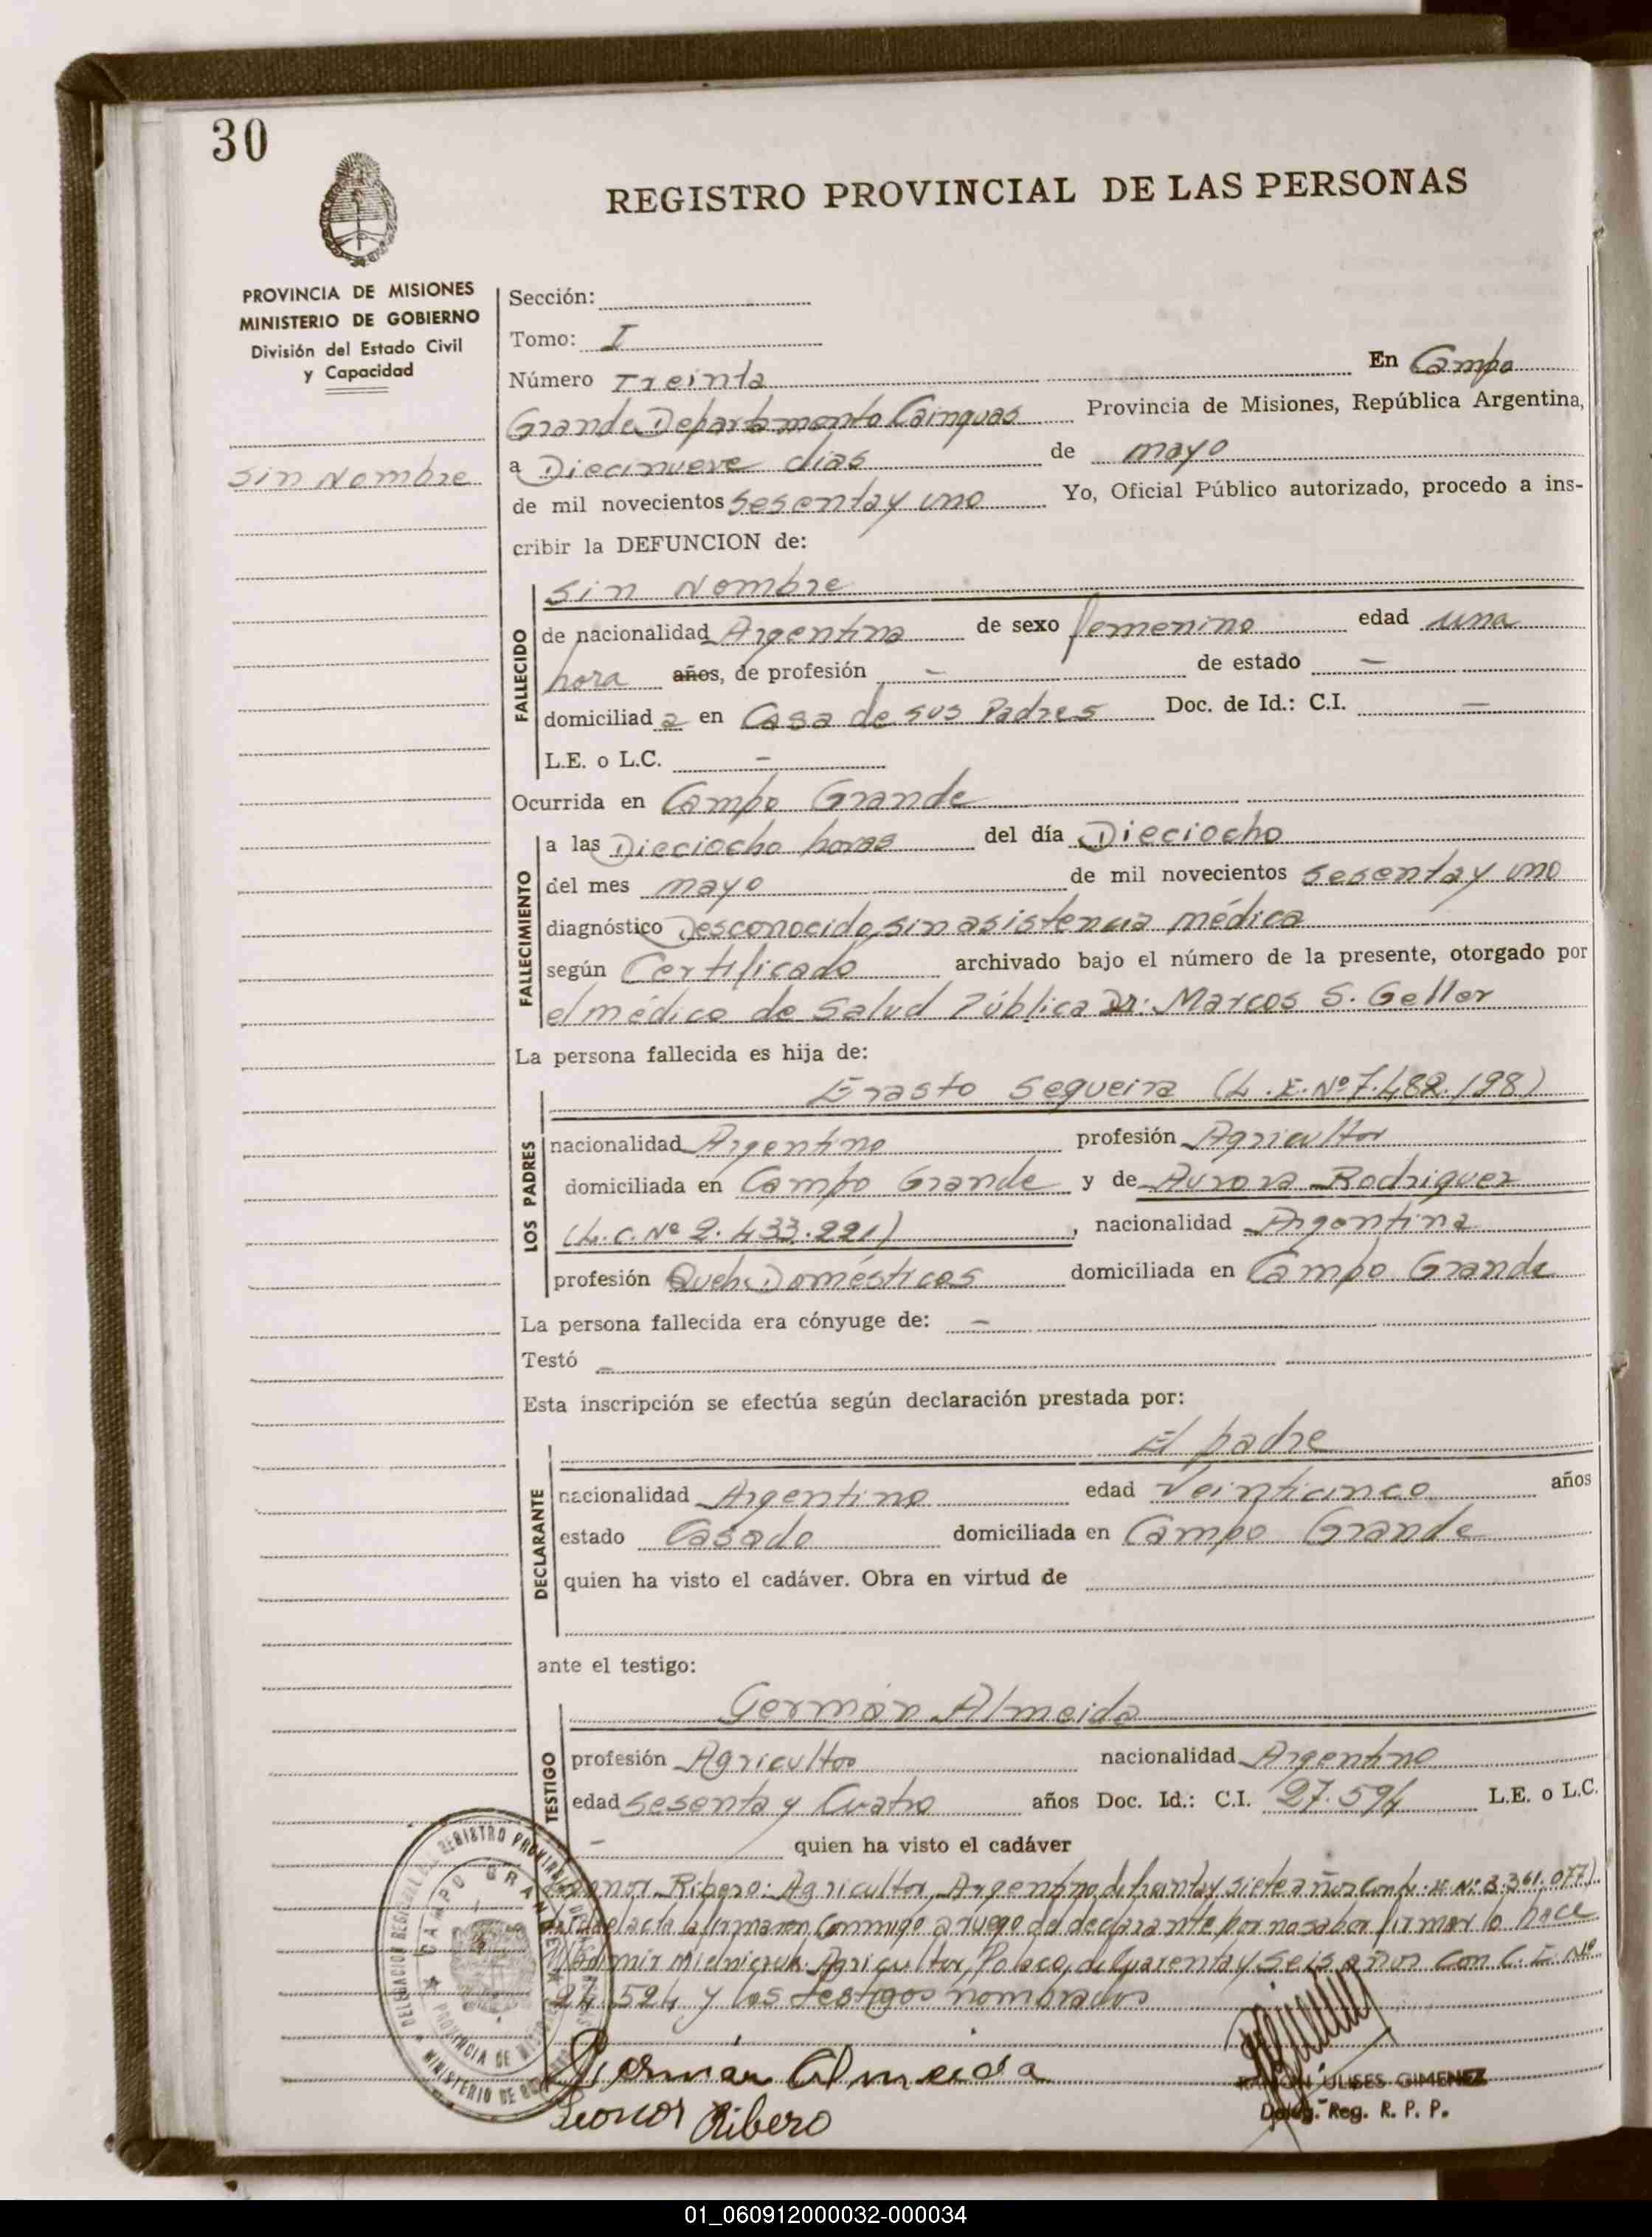 30
REGISTRO PROVINCIAL DE LAS PERSONAS
PROVINCIA DE MISIONES
MINISTERIO DE GOBIERNO
División del Estado Civil
y Capacidad
Sin Nombre
Sección:
Tomo: I
Número Treinta En Campo
Grande Departamento Cainguas Provincia de Misiones, República Argentina,
a Diecinueve dias de mayo
de mil novecientos Sesenta y uno Yo, Oficial Público autorizado, procedo a ins-
cribir la DEFUNCION de:
Sin Nombre
FALLECIDO
de nacionalidad Argentina de sexo femenino edad una
hora años, de profesión - de estado -
domiciliad a en Casa de sus Padres Doc. de Id.: C.I. -
L.E. o L.C. -
Ocurrida en Campo Grande
FALLECIMIENTO
a las Dieciocho horas del día Dieciocho
del mes mayo de mil novecientos Sesenta y uno
diagnóstico Desconocido, sin asistencia médica
según Certificado archivado bajo el número de la presente, otorgado por
el médico de Salud Pública Dr: Marcos S. Geller
La persona fallecida es hija de:
Erasto Sequeira (L.E. Nº 7.482.198)
LOS PADRES
nacionalidad Argentino profesión Agricultor
domiciliada en Campo Grande y de Aurora Rodriguez
(L.C. Nº 2.433.221), nacionalidad Argentina
profesión Queh. Domésticos domiciliada en Campo Grande
La persona fallecida era cónyuge de: -
Testó -
Esta inscripción se efectúa según declaración prestada por:
El padre
DECLARANTE
nacionalidad Argentino edad Veinticinco años
estado Casado domiciliada en Campo Grande
quien ha visto el cadáver. Obra en virtud de
ante el testigo:
Germán Almeida
TESTIGO
profesión Agricultor nacionalidad Argentino
edad Sesenta y Cuatro años Doc. Id.: C.I. 27.594 L.E. o L.C.
- quien ha visto el cadáver
Leonor Ribero: Agricultor, Argentino, de treinta y siete años con L.E. Nº 3.361.077).
el acta la firmaron Conmigo a ruego del declarante por no saber firmar lo hace
Agricultor, Polaco, de Cuarenta y seis años con C.I. Nº
24.524 y los testigos nombrados
Germán Almeida
Leonor Ribero
RAMON ULISES GIMENEZ
Deleg. Reg. R. P. P.
CAMPO GRANDE
PROVINCIA DE
01_060912000032-000034